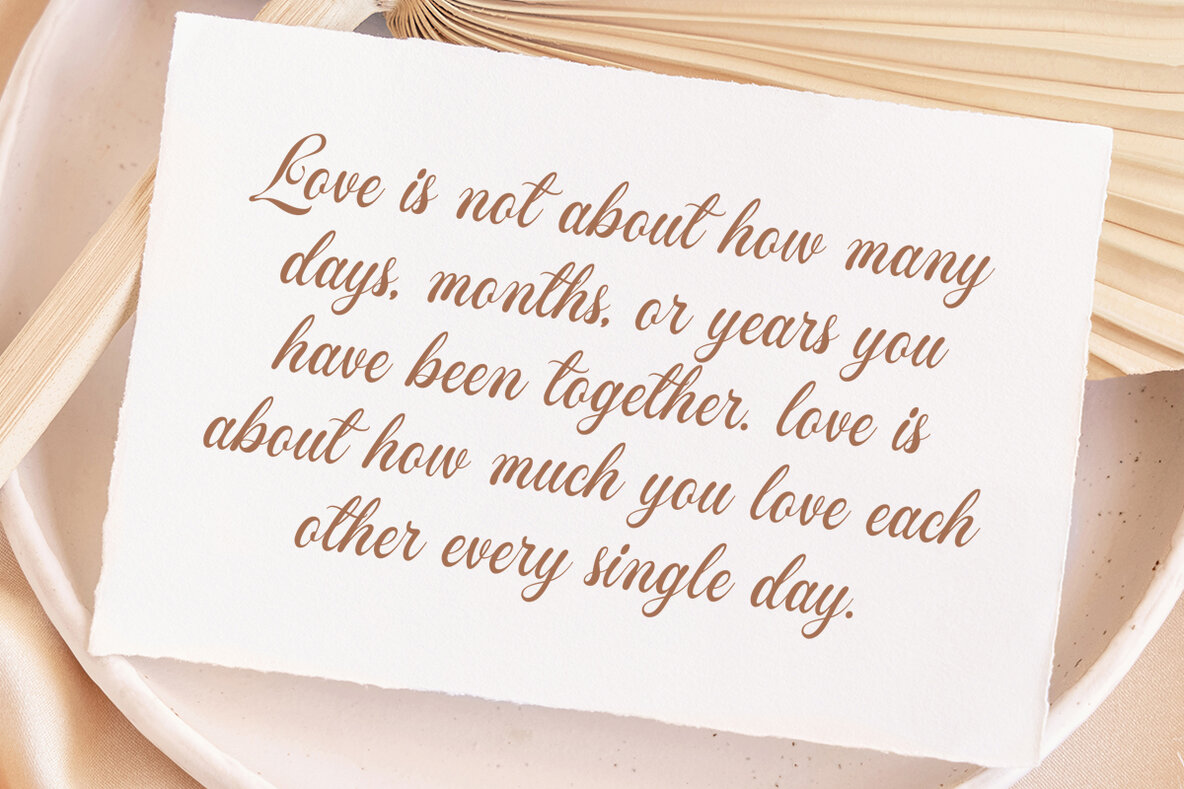 Love is not about how many
days, months, or years you
have been together. love is
about how much you love each
other every single day.